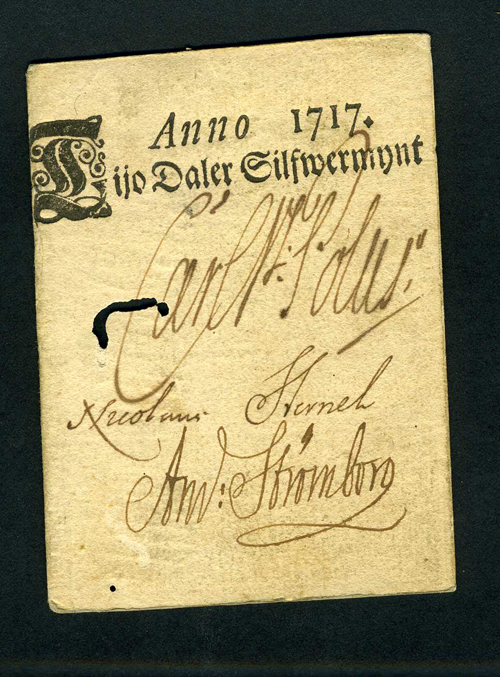 Anno 1717.
Tijo Daler Silfwermynt
Carl
Nicolaus Sternell
And: Strömberg